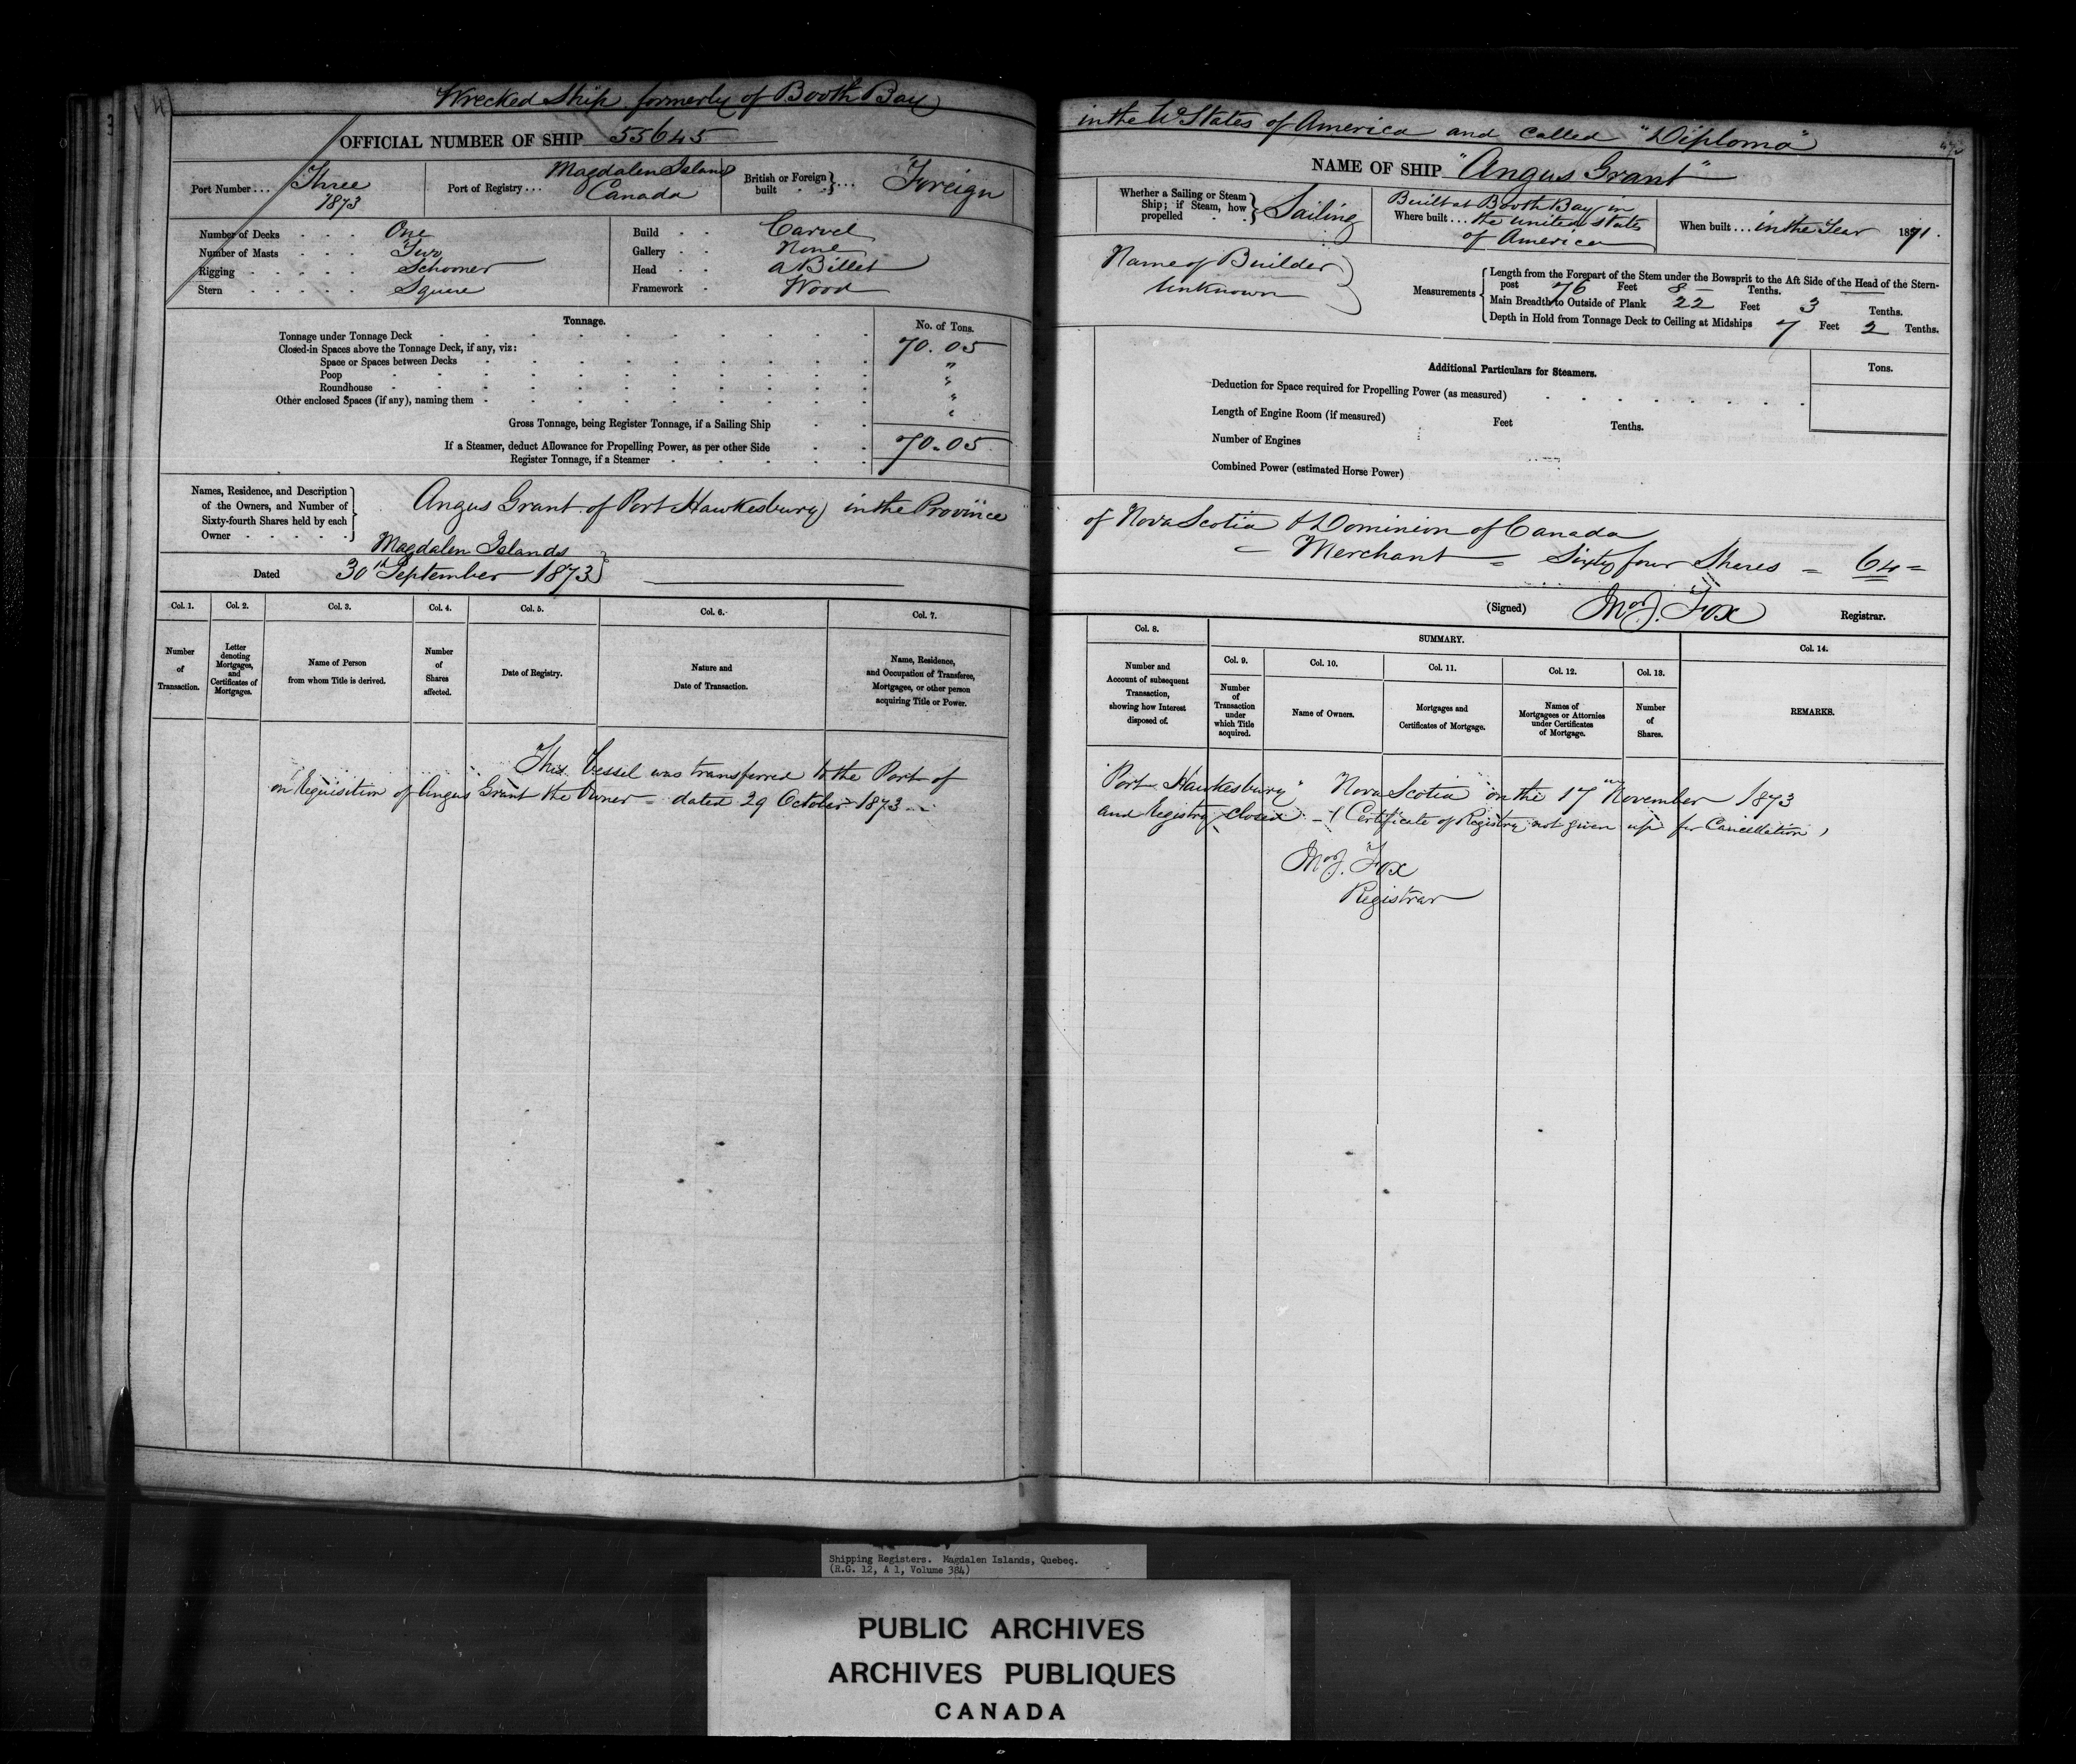 Wrecked Ship formerly of Booth Bay
OFFICIAL NUMBER OF SHIP 55645
Port Number... Three 1873
Port of Registry... Magdalen Island Canada
British or Foreign built } ... Foreign
Number of Decks . . . One
Number of Masts . . . Two
Rigging . . . . . Schooner
Stern . . . . . Square
Build . . Carvel
Gallery . . None
Head . . a Billet
Framework . Wood
Tonnage.
No. of Tons.
Tonnage under Tonnage Deck 70.05
Closed-in Spaces above the Tonnage Deck, if any, viz:
Space or Spaces between Decks "
Poop "
Roundhouse "
Other enclosed Spaces (if any), naming them "
Gross Tonnage, being Register Tonnage, if a Sailing Ship 70.05
If a Steamer, deduct Allowance for Propelling Power, as per other Side
Register Tonnage, if a Steamer
Names, Residence, and Description of the Owners, and Number of Sixty-fourth Shares held by each Owner
Angus Grant of Port Hawkesbury in the Province
Magdalen Islands
Dated 30th September 1873
Col. 1. Col. 2. Col. 3. Col. 4. Col. 5. Col. 6. Col. 7.
Number of Transaction.
Letter denoting Mortgages, and Certificates of Mortgages.
Name of Person from whom Title is derived.
Number of Shares affected.
Date of Registry.
Nature and Date of Transaction.
Name, Residence, and Occupation of Transferee, Mortgagee, or other person acquiring Title or Power.
This Vessel was transferred to the Port of
on Requisition of Angus Grant the Owner - dated 29 October 1873
in the U States of America and called "Diploma"
NAME OF SHIP "Angus Grant"
Whether a Sailing or Steam Ship; if Steam, how propelled } Sailing
Where built... Built at Booth Bay in the United States of America
When built... in the Year 1871.
Name of Builder
Unknown
Measurements
Length from the Forepart of the Stem under the Bowsprit to the Aft Side of the Head of the Stern-
post 76 Feet 8 Tenths.
Main Breadth to Outside of Plank 22 Feet 3 Tenths.
Depth in Hold from Tonnage Deck to Ceiling at Midships 7 Feet 2 Tenths.
Additional Particulars for Steamers.
Tons.
Deduction for Space required for Propelling Power (as measured)
Length of Engine Room (if measured) Feet Tenths.
Number of Engines
Combined Power (estimated Horse Power)
of Nova Scotia & Dominion of Canada
- Merchant - Sixty four Shares = 64 =
(Signed) Fox Registrar.
Col. 8.
SUMMARY.
Col. 9. Col. 10. Col. 11. Col. 12. Col. 13. Col. 14.
Number and Account of subsequent Transaction, showing how Interest disposed of.
Number of Transaction under which Title acquired.
Name of Owners.
Mortgages and Certificates of Mortgage.
Names of Mortgagees or Attornies under Certificates of Mortgage.
Number of Shares.
REMARKS.
Port Hawkesbury Nova Scotia on the 17th November 1873
and Registry closed - (Certificate of Registry not given up for Cancellation)
Fox
Registrar
Shipping Registers. Magdalen Islands, Quebec.
(R.G. 12, A 1, Volume 384)
PUBLIC ARCHIVES
ARCHIVES PUBLIQUES
CANADA